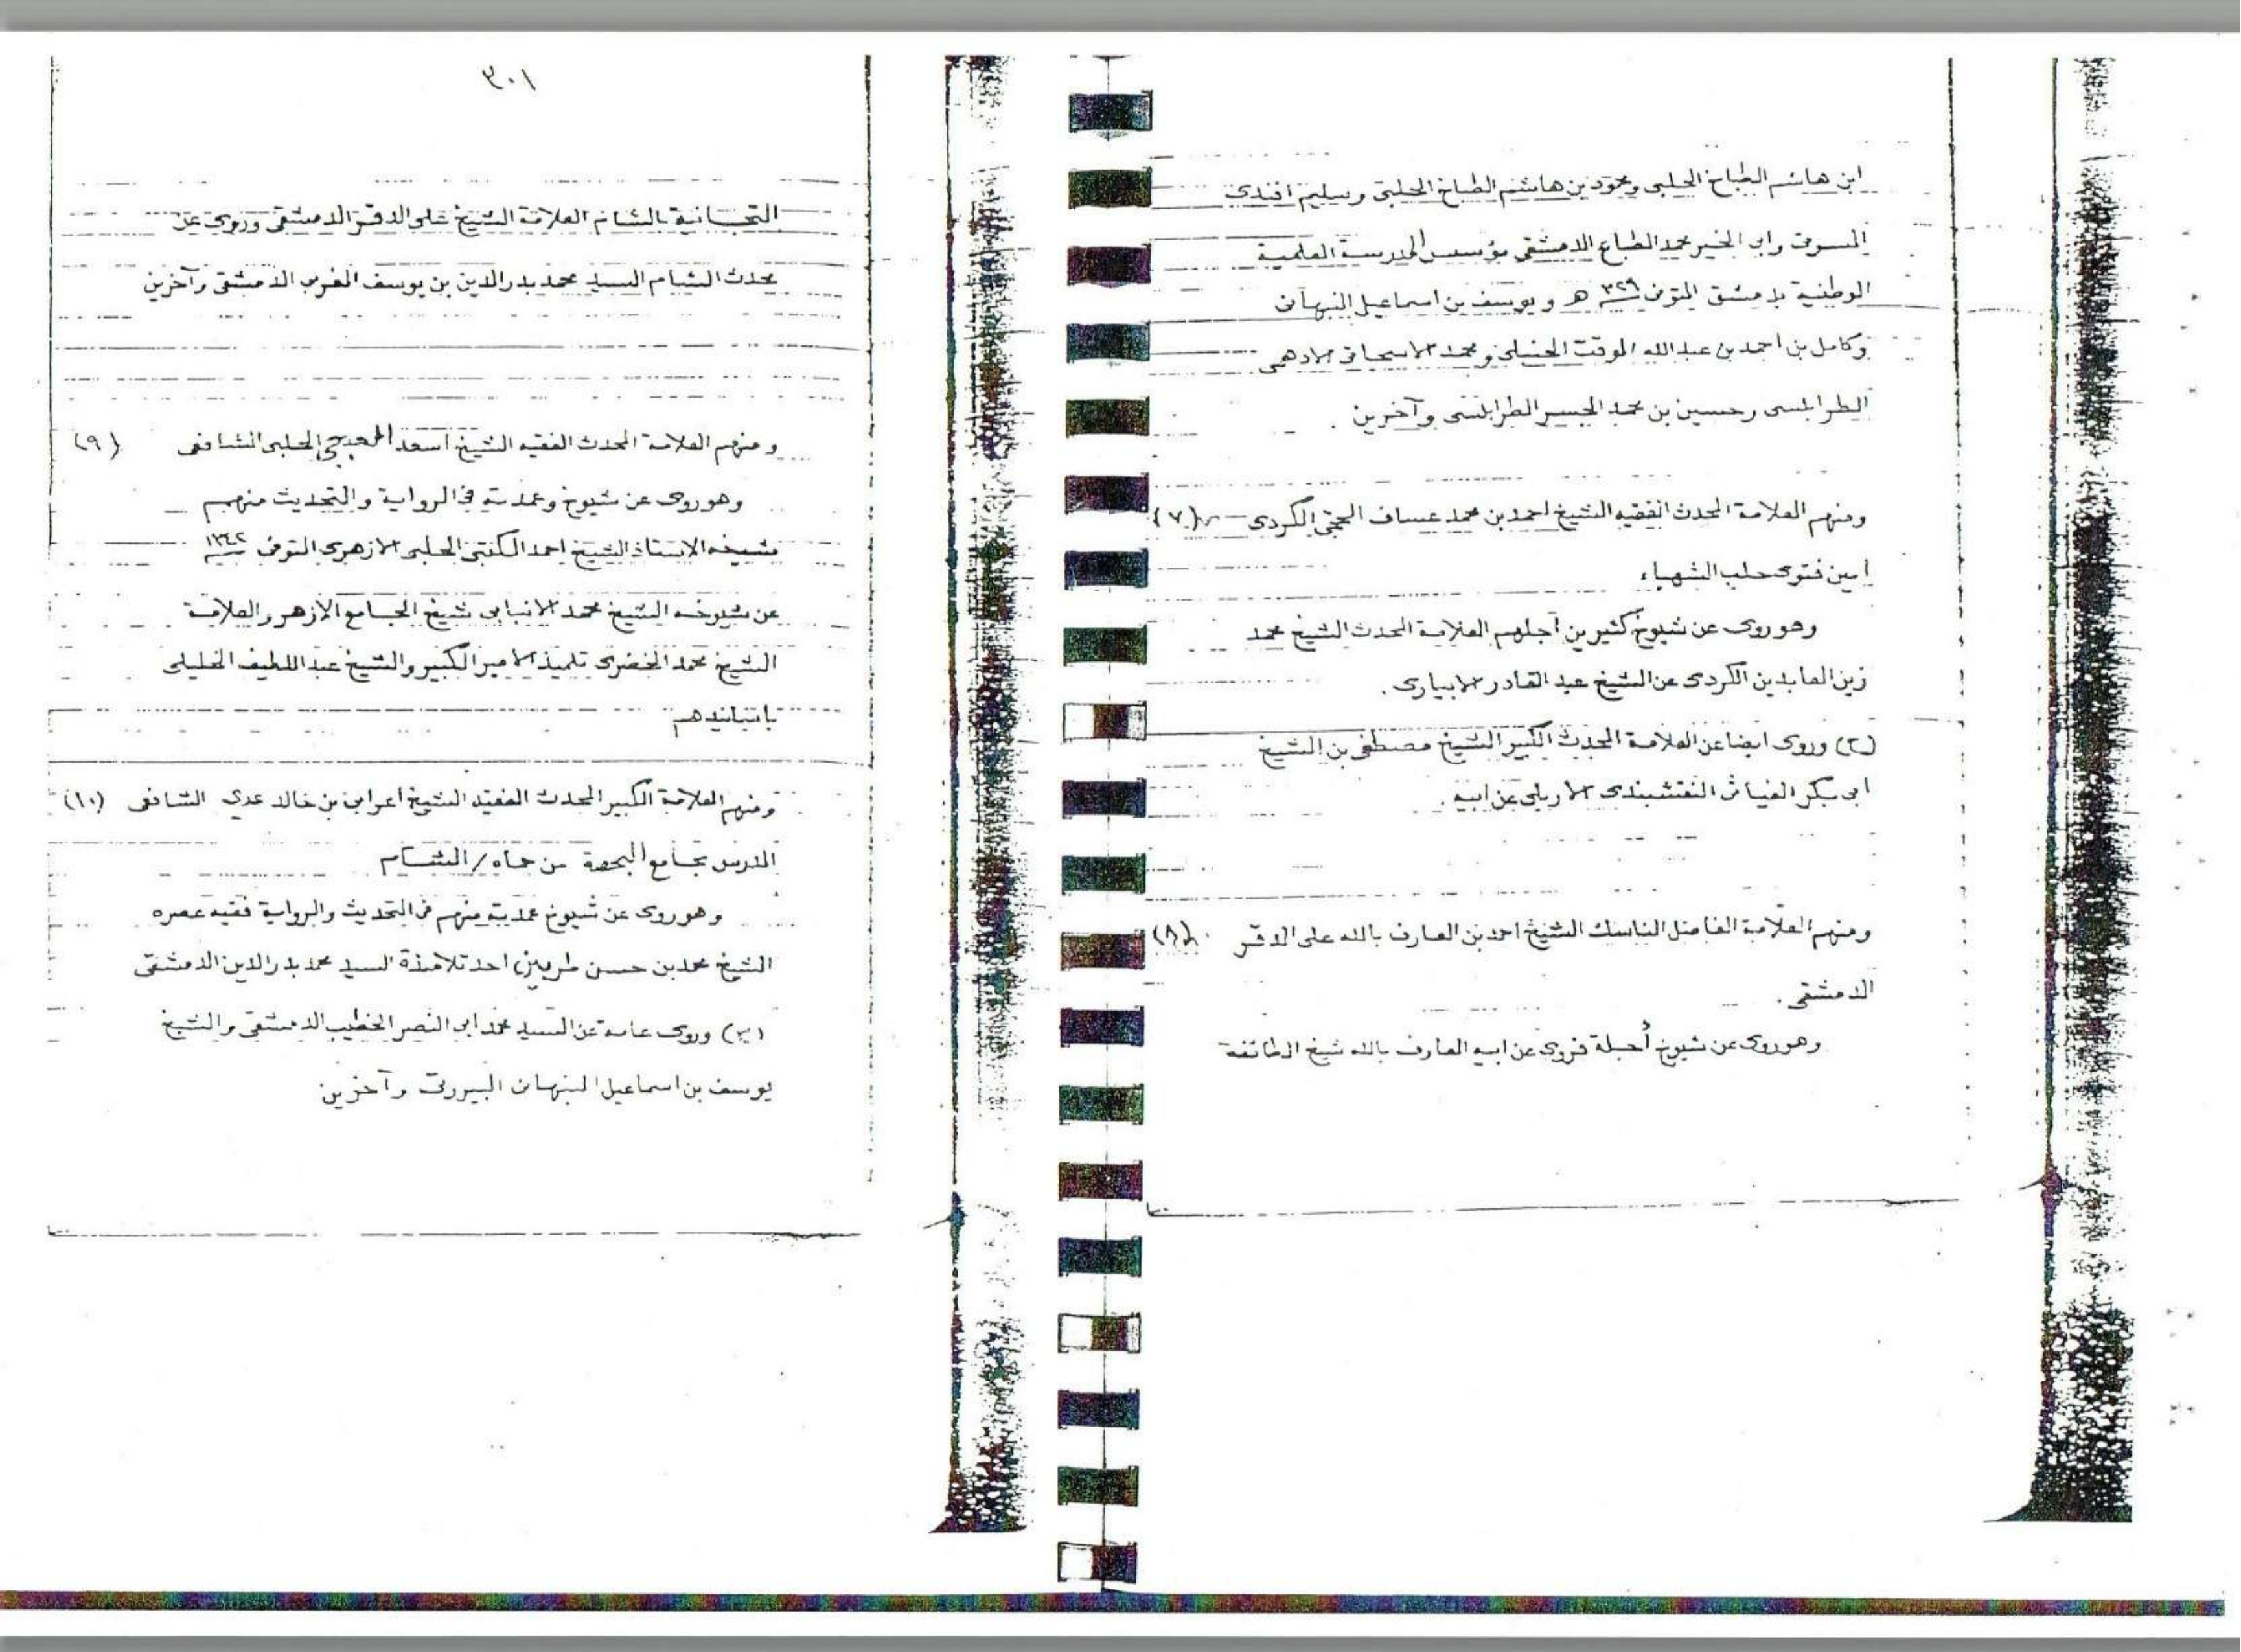 ابن هاشم الطباخ الحلبي ومحمود بن هاشم الطباخ الحلبي وسليم افندى
المسوتى وابى الخير محمد الطباع الدمشقى مؤسس المدرسة العلمية
الوطنية بدمشق المتوفى ٣٢٩ سنة هـ ويوسف بن اسماعيل النبهانى
وكامل بن احمد بن عبد الله الموقت الحنبلى ومحمد الاسحاقى الادهمى
الطرابلسى وحسين بن محمد الجسر الطرابلسى وآخرين .
ومنهم العلامة المحدث الفقيه الشيخ احمد بن محمد عساف الحجى الكردى (٧)
امين فتوى حلب الشهباء
وهو روى عن شيوخ كثيرين أجلهم العلامة المحدث الشيخ محمد
زين العابدين الكردى عن الشيخ عبد القادر الابيارى .
(٢) وروى ايضا عن العلامة المحدث الكبير الشيخ مصطفى بن الشيخ
ابى بكر الغياثى النقشبندى الاربلى عن ابيه .
ومنهم العلّامة الفاضل الناسك الشيخ احمد بن العارف بالله على الدقر (٨)
الدمشقى .
وهو روى عن شيوخ أجلة فروى عن ابيه العارف بالله شيخ الطائفة
٣٠١
التجانية بالشام العلامة الشيخ على الدقر الدمشقى وروى عن
محدث الشام السيد محمد بدر الدين بن يوسف المغربى الدمشقى وآخرين
ومنهم العلامة المحدث الفقيه الشيخ أسعد الحلبى الشافعى (٩)
وهو روى عن شيوخ وعمدته فى الرواية والتحديث منهم
شيخه الاستاذ الشيخ احمد الكتبى الحلبى الازهرى المتوفى سنة ١٣٤٢
عن شيوخه الشيخ محمد الانبابى شيخ الجامع الازهر والعلامة
الشيخ محمد الخضرى تلميذ الامير الكبير والشيخ عبد اللطيف الخليلى
باسانيدهم
ومنهم العلامة الكبير المحدث الفقيه الشيخ اعرابى بن خالد عدى الشافعى (١٠)
المدرس بجامع البحصة من حماه/الشام
وهو روى عن شيوخ عمدته منهم فى التحديث والرواية فقيه عصره
الشيخ محمد بن حسن احد تلامذة السيد محمد بدر الدين الدمشقى
(٢) وروى عامة عن السيد محمد ابى النصر الخطيب الدمشقى والشيخ
يوسف بن اسماعيل النبهانى البيروتى وآخرين